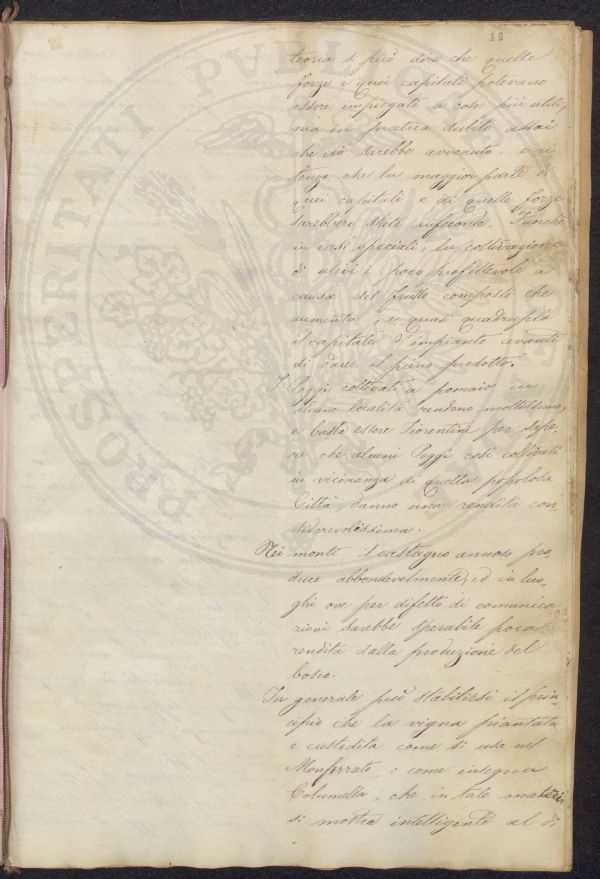 16
teoria si può dire che quelle
forze e quei capitali potevano
essere impiegati a cose più utili,
ma in pratica dubito assai
che ciò sarebbe avvenuto, e ri
tengo che la maggior parte di
quei capitali e di quelle forze
sarebbero state infeconde. Fuorchè
in casi speciali, la coltivazione
di ulivi è poco profittevole a
causa del frutto composto che
aumenta, e quasi quadrupla
il capitale d'impianto avanti
di dare il pieno prodotto.
I Poggi coltivati a pomaio in
località rendono moltissimo,
e basta essere Fiorentini per sape-
re che alcuni Poggi così coltivati
in vicinanza di quella popolosa
Città, danno una rendita con-
siderevolissima.
Nei monti il castagno annoso pro-
duce abbondevolmente, ed in luo-
ghi ove per difetto di comunica-
zioni sarebbe sperabile poca
rendita dalla produzione del
bosco.
In generale può stabilirsi il prin-
cipio che la vigna piantata
e custodita come si usa nel
Monferrato, e come insegna
Columella, che in tale materia
si mostra intelligente al di
PROSPERITATI PVBLI